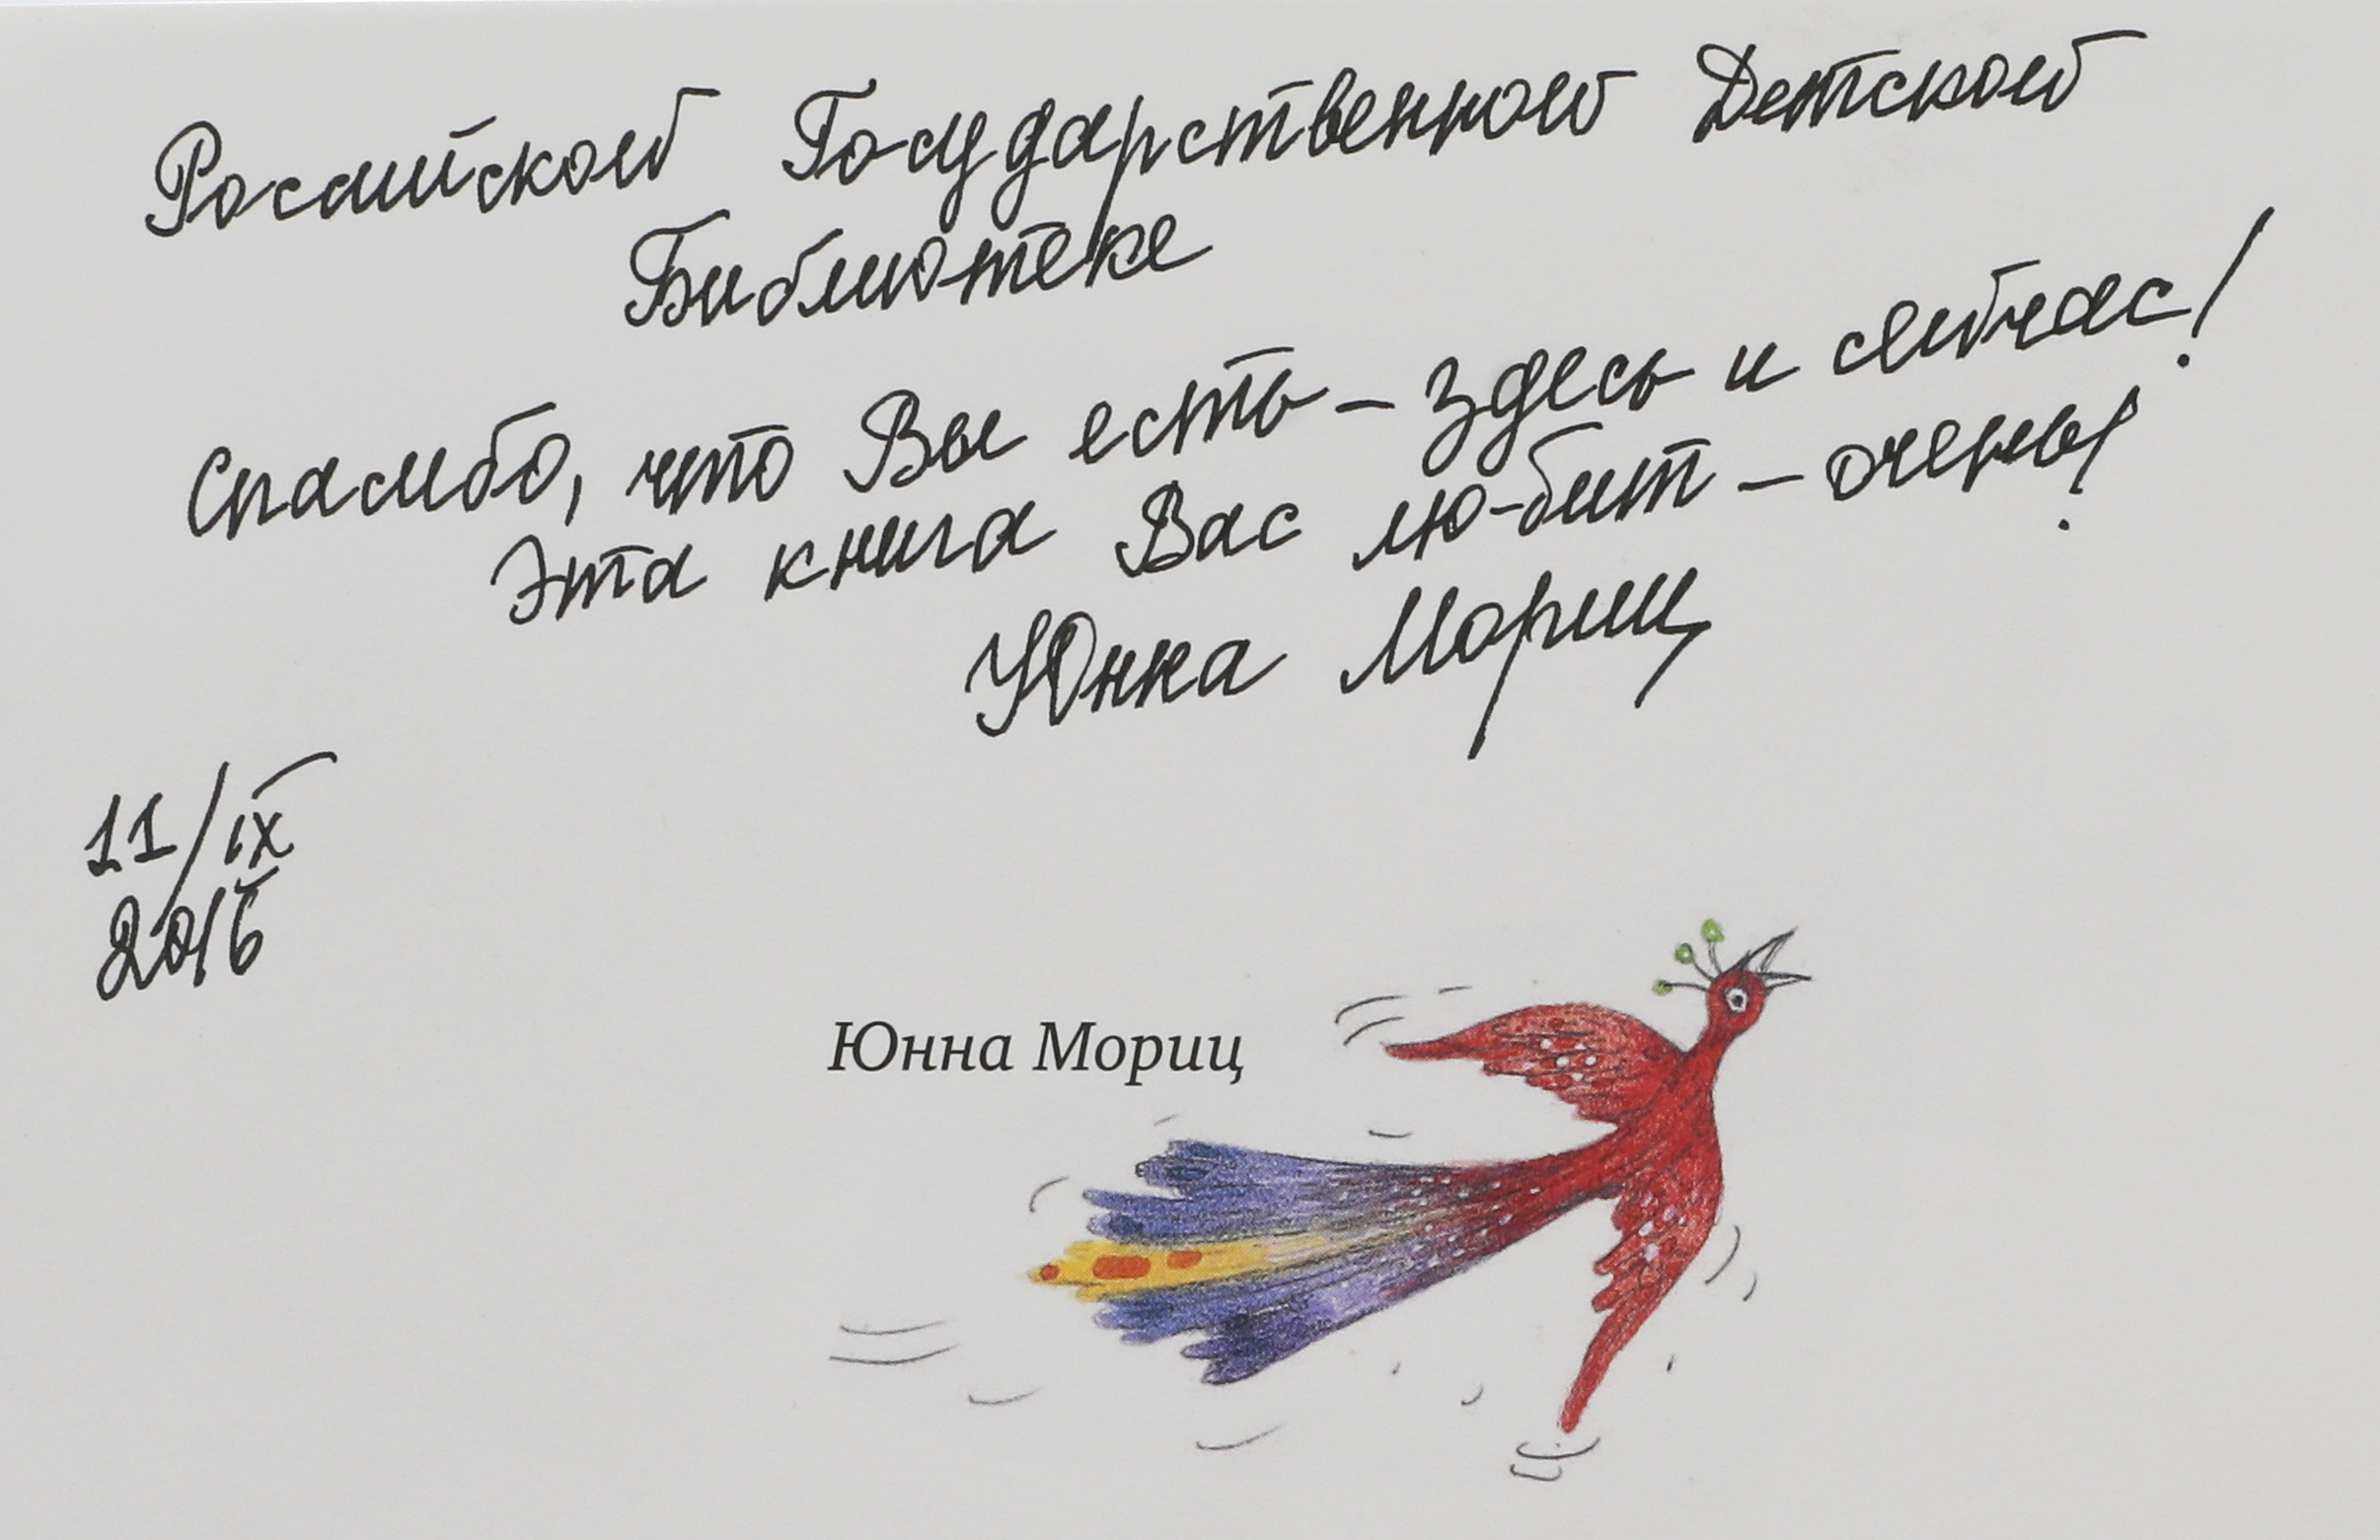 Российской Государственной Детской
Библиотеке
Спасибо, что Вы есть – здесь и сейчас!
Эта книга Вас лю-бит – очень!
Юнна Мориц
11/IX
2016
Юнна Мориц